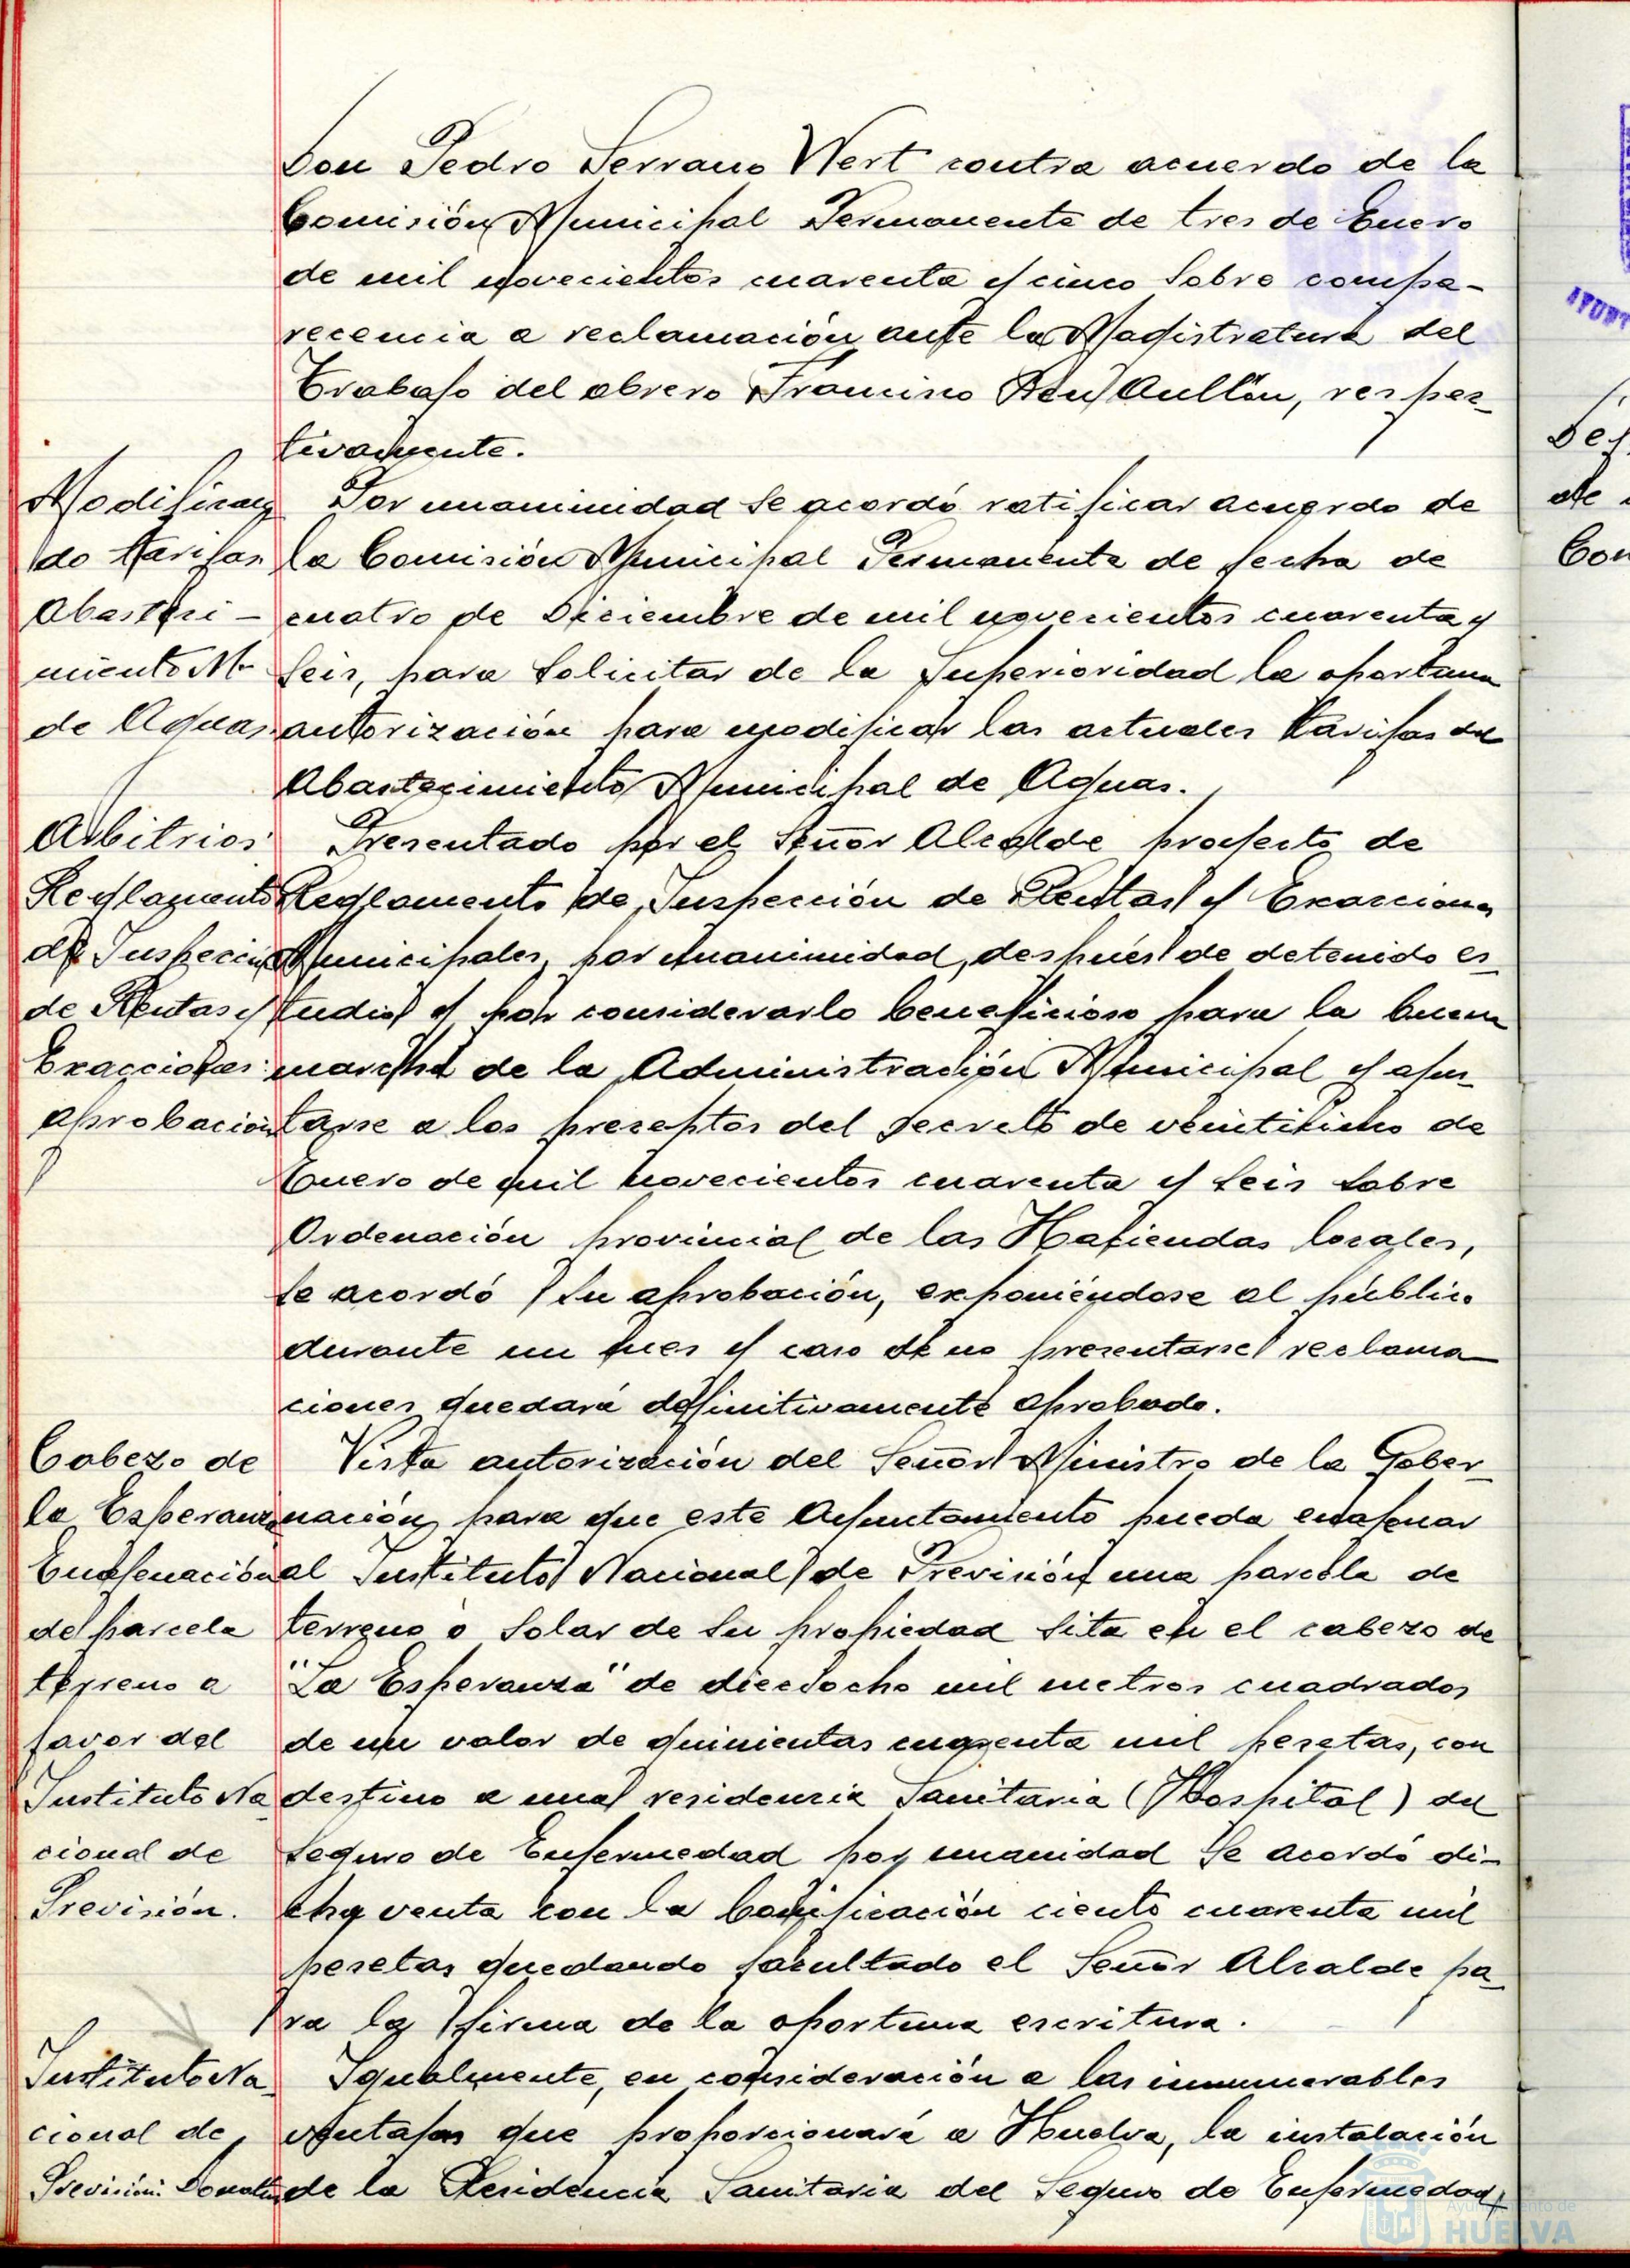 Don Pedro Serrano Wert contra acuerdo de la
Comisión Municipal Permanente de tres de Enero
de mil novecientos cuarenta y cinco sobre compa-
recencia a reclamación ante la Magistratura del
Trabajo del obrero Francisco Aullón, respec-
tivamente.
Modifican
do tarifas
Abasteci-
miento M.
de Aguas
Por unanimidad se acordó ratificar acuerdo de
la Comisión Municipal Permanente de fecha de
cuatro de Diciembre de mil novecientos cuarenta y
seis, para solicitar de la Superioridad la oportuna
autorización para modificar las actuales tarifas del
Abastecimiento Municipal de Aguas.
Arbitrios
Reglamento
de Inspección
de Rentas y
Exacciones
aprobación
Presentado por el Señor Alcalde proyecto de
Reglamento de Inspección de Rentas y Exacciones
Municipales, por unanimidad, después de detenido es-
tudio y por considerarlo beneficioso para la buena
marcha de la Administración Municipal y ajus-
tarse a los preceptos del Decreto de veinticinco de
Enero de mil novecientos cuarenta y seis sobre
Ordenación provincial de las Haciendas locales,
se acordó su aprobación, exponiéndose al público
durante un mes y caso de no presentarse reclama-
ciones quedará definitivamente aprobado.
Cabezo de
la Esperanza
Enajenación
de parcela
terreno a
favor del
Instituto Na-
cional de
Previsión.
Vista autorización del Señor Ministro de la Gober-
nación para que este Ayuntamiento pueda enajenar
al Instituto Nacional de Previsión una parcela de
terreno o solar de su propiedad sita en el cabezo de
"La Esperanza" de dieciocho mil metros cuadrados
de un valor de quinientas cuarenta mil pesetas, con
destino a una residencia Sanitaria (Hospital) del
Seguro de Enfermedad por unanidad se acordó di-
cha venta con la bonificación ciento cuarenta mil
pesetas quedando facultado el Señor Alcalde pa-
ra la firma de la oportuna escritura.
Instituto Na-
cional de
Previsión: Donativo
Igualmente, en consideración a las innumerables
ventajas que proporcionará a Huelva, la instalación
de la Residencia Sanitaria del Seguro de Enfermedad,
de
Con
Ayuntamiento de
HUELVA